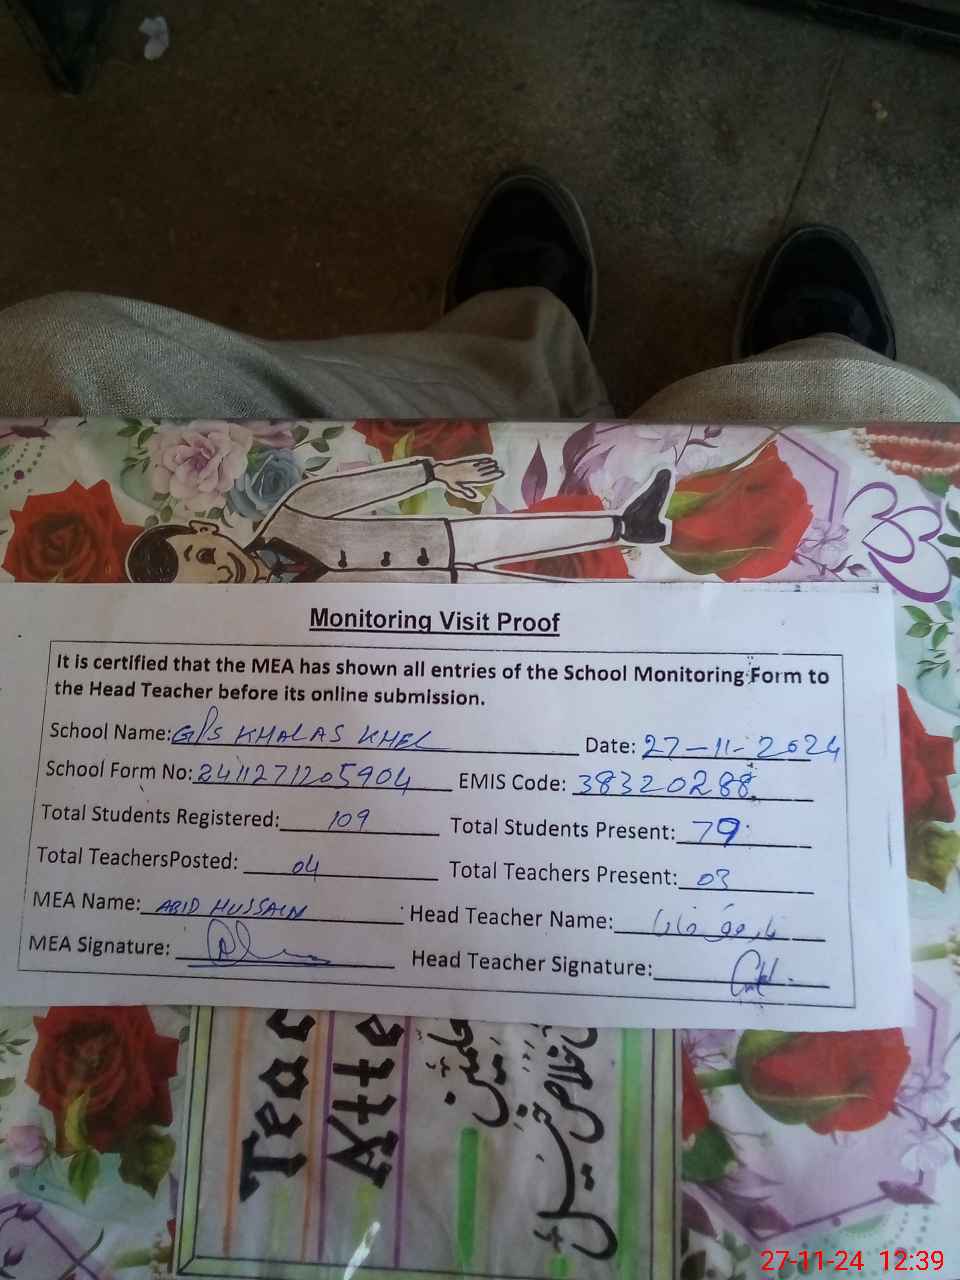 Monitoring Visit Proof
It is certified that the MEA has shown all entries of the School Monitoring Form to
the Head Teacher before its online submission.
School Name: GPS KHALAS KHEL Date: 27-11-2024
School Form No: 2411271205904 EMIS Code: 38320288
Total Students Registered: 109 Total Students Present: 79
Total TeachersPosted: 04 Total Teachers Present: 03
MEA Name: ABID HUSSAIN Head Teacher Name:
MEA Signature: Head Teacher Signature:
Teac
Atte
خلاص خیل
27-11-24 12:39